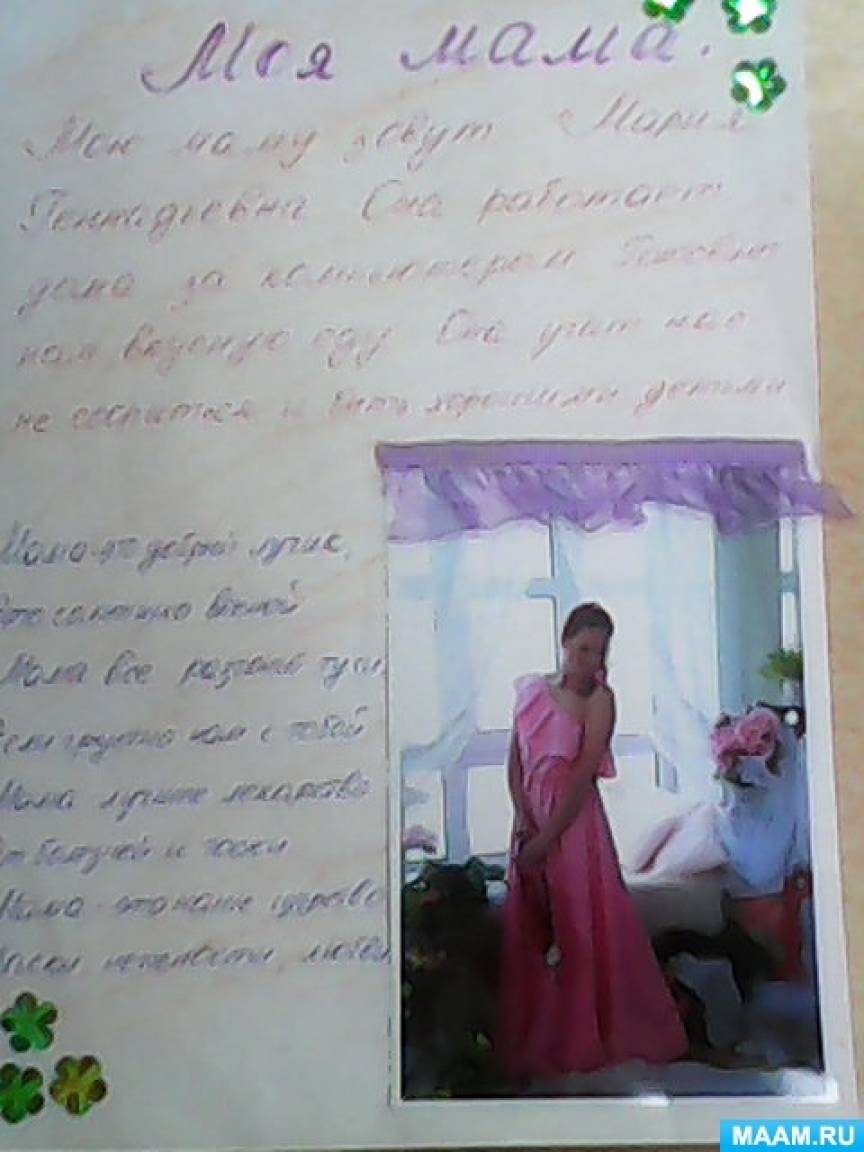 Моя мама.
Мою маму зовут Мария
Геннадьевна Она работает
дома за компьютером Готовит
нам вкусную еду Она учит нас
не ссориться и быть хорошими детьми
Мама-это добрый лучик,
Это солнышко весной
Мама все разгонит тучи,
Если грустно нам с тобой
Мама лучшее лекарство
От болезней и тоски
Мама-это наше царство
Ласки нежности, любви
MAAM.RU